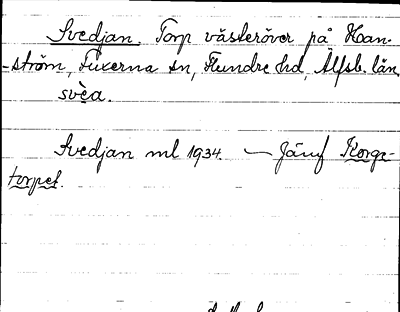 Svedjan. Torp västeröver på Koan-
-ström, Fuxerna sn, Flundre hd, Älfsb. län
svèa.
Svedjan ml 1934. — Jämf Korgs-
torpet.